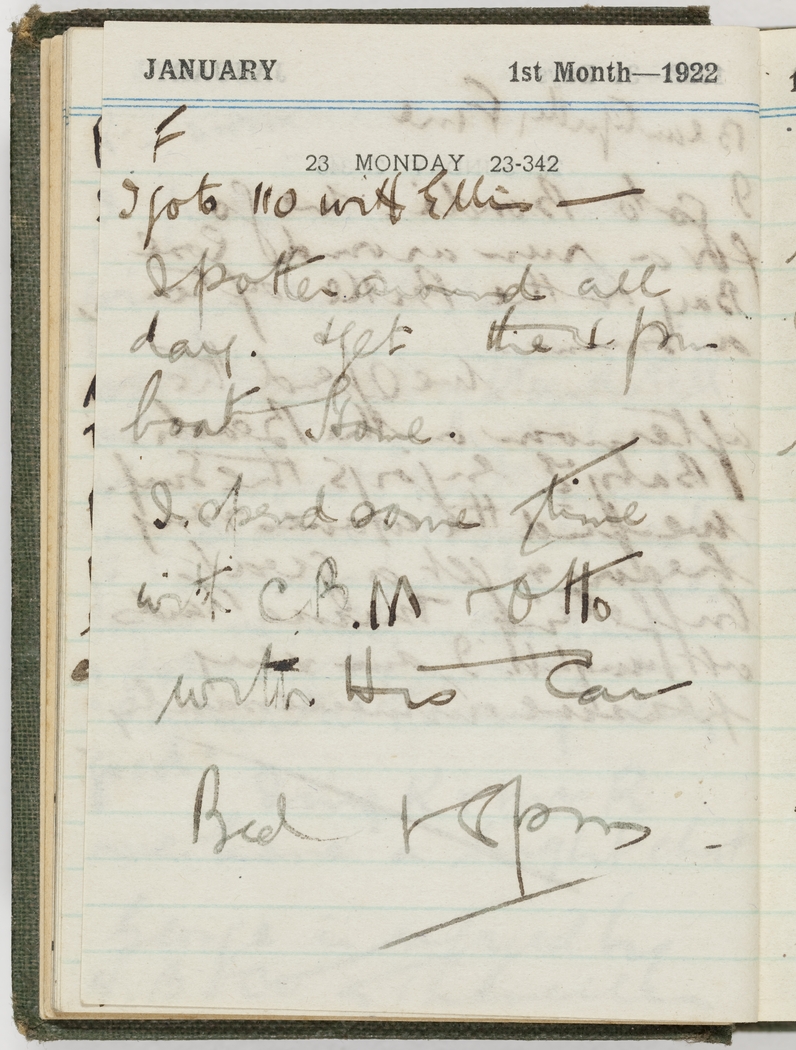 JANUARY 1st Month—1922
F
23 MONDAY 23-342
I go to 110 with Ellis —
I potter around all
day. & get the 4 pm
boat Home.
I spend some time
with C.B.M & Otto
with His Car
Bed 8 pm -